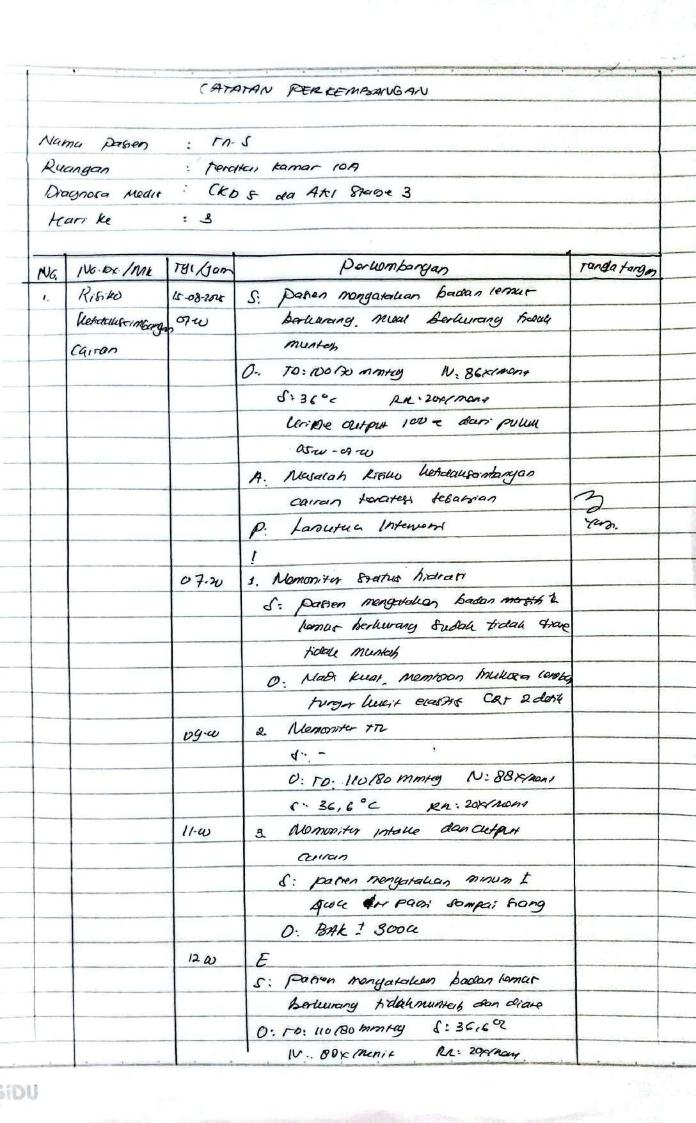 CATATAN PERKEMBANGAN
Nama Pasien : Tn. S
Ruangan : Kamar 10A
Diagnosa Medis : CKD 5 dd AKI Stage 3
Hari ke : 3
No. No. Dx. / MK Tgl/Jam Perkembangan Tanda tangan
1. Risiko 15-08-2025 S: Pasien mengatakan badan lemas
Ketidakseimbangan 07.00 berkurang, mual berkurang tidak
Cairan muntah
O: TD: 100/70 mmHg N: 86x/menit
S: 36°C RR: 20x/menit
Urine output 100 cc dari pukul
05.00 - 07.00
A: Masalah Risiko ketidakseimbangan
cairan teratasi sebagian
P: Lanjutkan Intervensi
I
07.20 1. Memonitor status hidrasi
S: pasien mengatakan badan
lemas berkurang sudah tidak diare
tidak muntah
O: Nadi kuat, membran mukosa lembab
turgor kulit elastis CRT 2 detik
09.00 2. Memonitor TTV
S: -
O: TD: 110/80 mmHg N: 88x/menit
S: 36,6°C RR: 20x/menit
11.00 3. Memonitor intake dan output
cairan
S: pasien mengatakan minum 1
pagi sampai siang
O: BAK ± 300cc
12.00 E
S: Pasien mengatakan badan lemas
berkurang tidak muntah dan diare
O: TD: 110/80 mmHg S: 36,6°C
N: 88x/menit RR: 20x/menit
SiDU